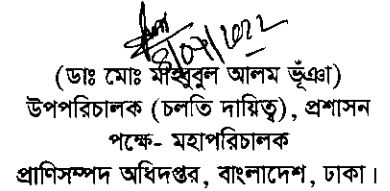 (ডাঃ মোঃ মাহবুবুল আলম ভূঁঞা)
উপপরিচালক (চলতি দায়িত্ব), প্রশাসন
পক্ষে- মহাপরিচালক
প্রাণিসম্পদ অধিদপ্তর, বাংলাদেশ, ঢাকা।